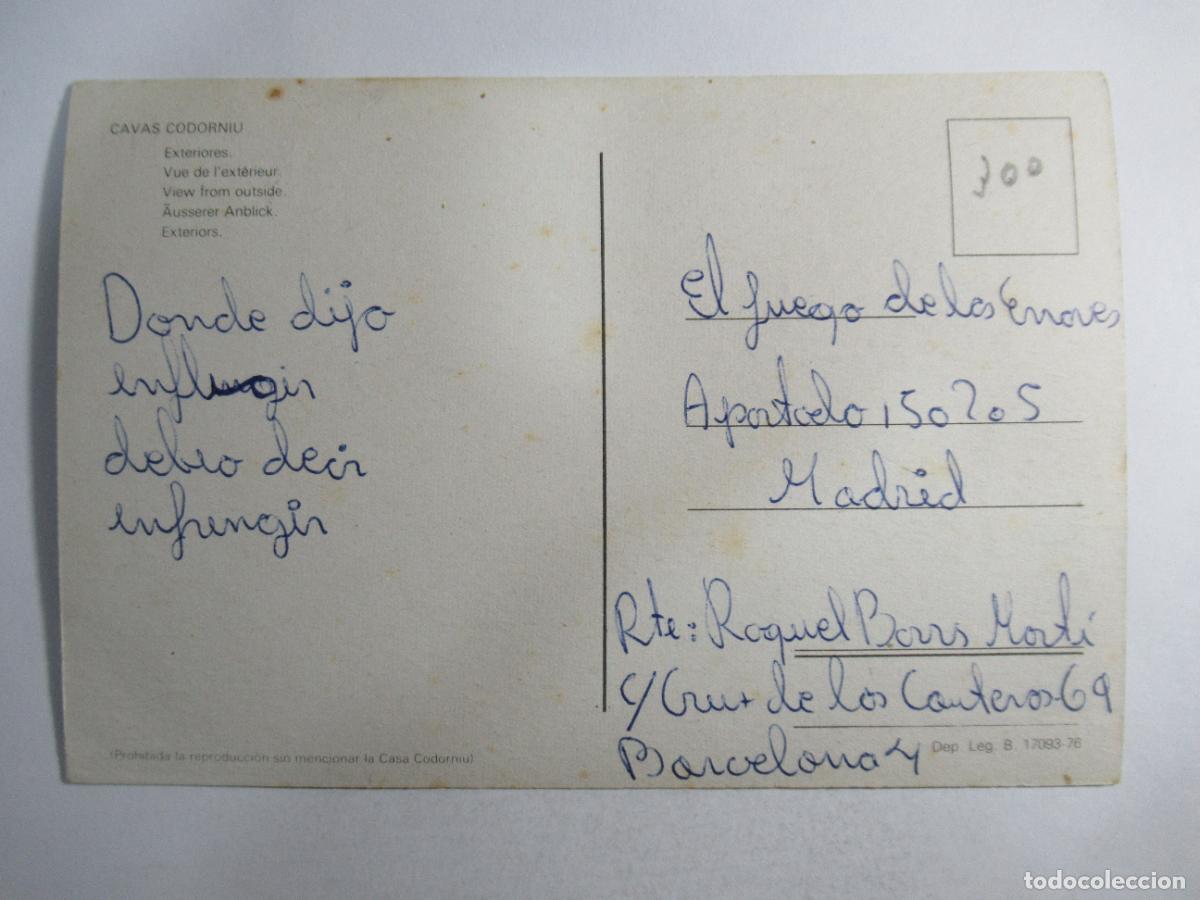 CAVAS CODORNIU
Exteriores.
Vue de l'extérieur.
View from outside.
Äusserer Anblick.
Exteriors.
300
Donde dijo
enflungir
debio decir
enfrengir
El fuego de los Enores
Apartado 150205
Madrid
Rte: Raquel Borrs Martí
C/ Cruz de los Canteros 69
Barcelona 4
Dep. Leg. B. 17093-76
(Prohibida la reproducción sin mencionar la Casa Codorniu)
todocoleccion